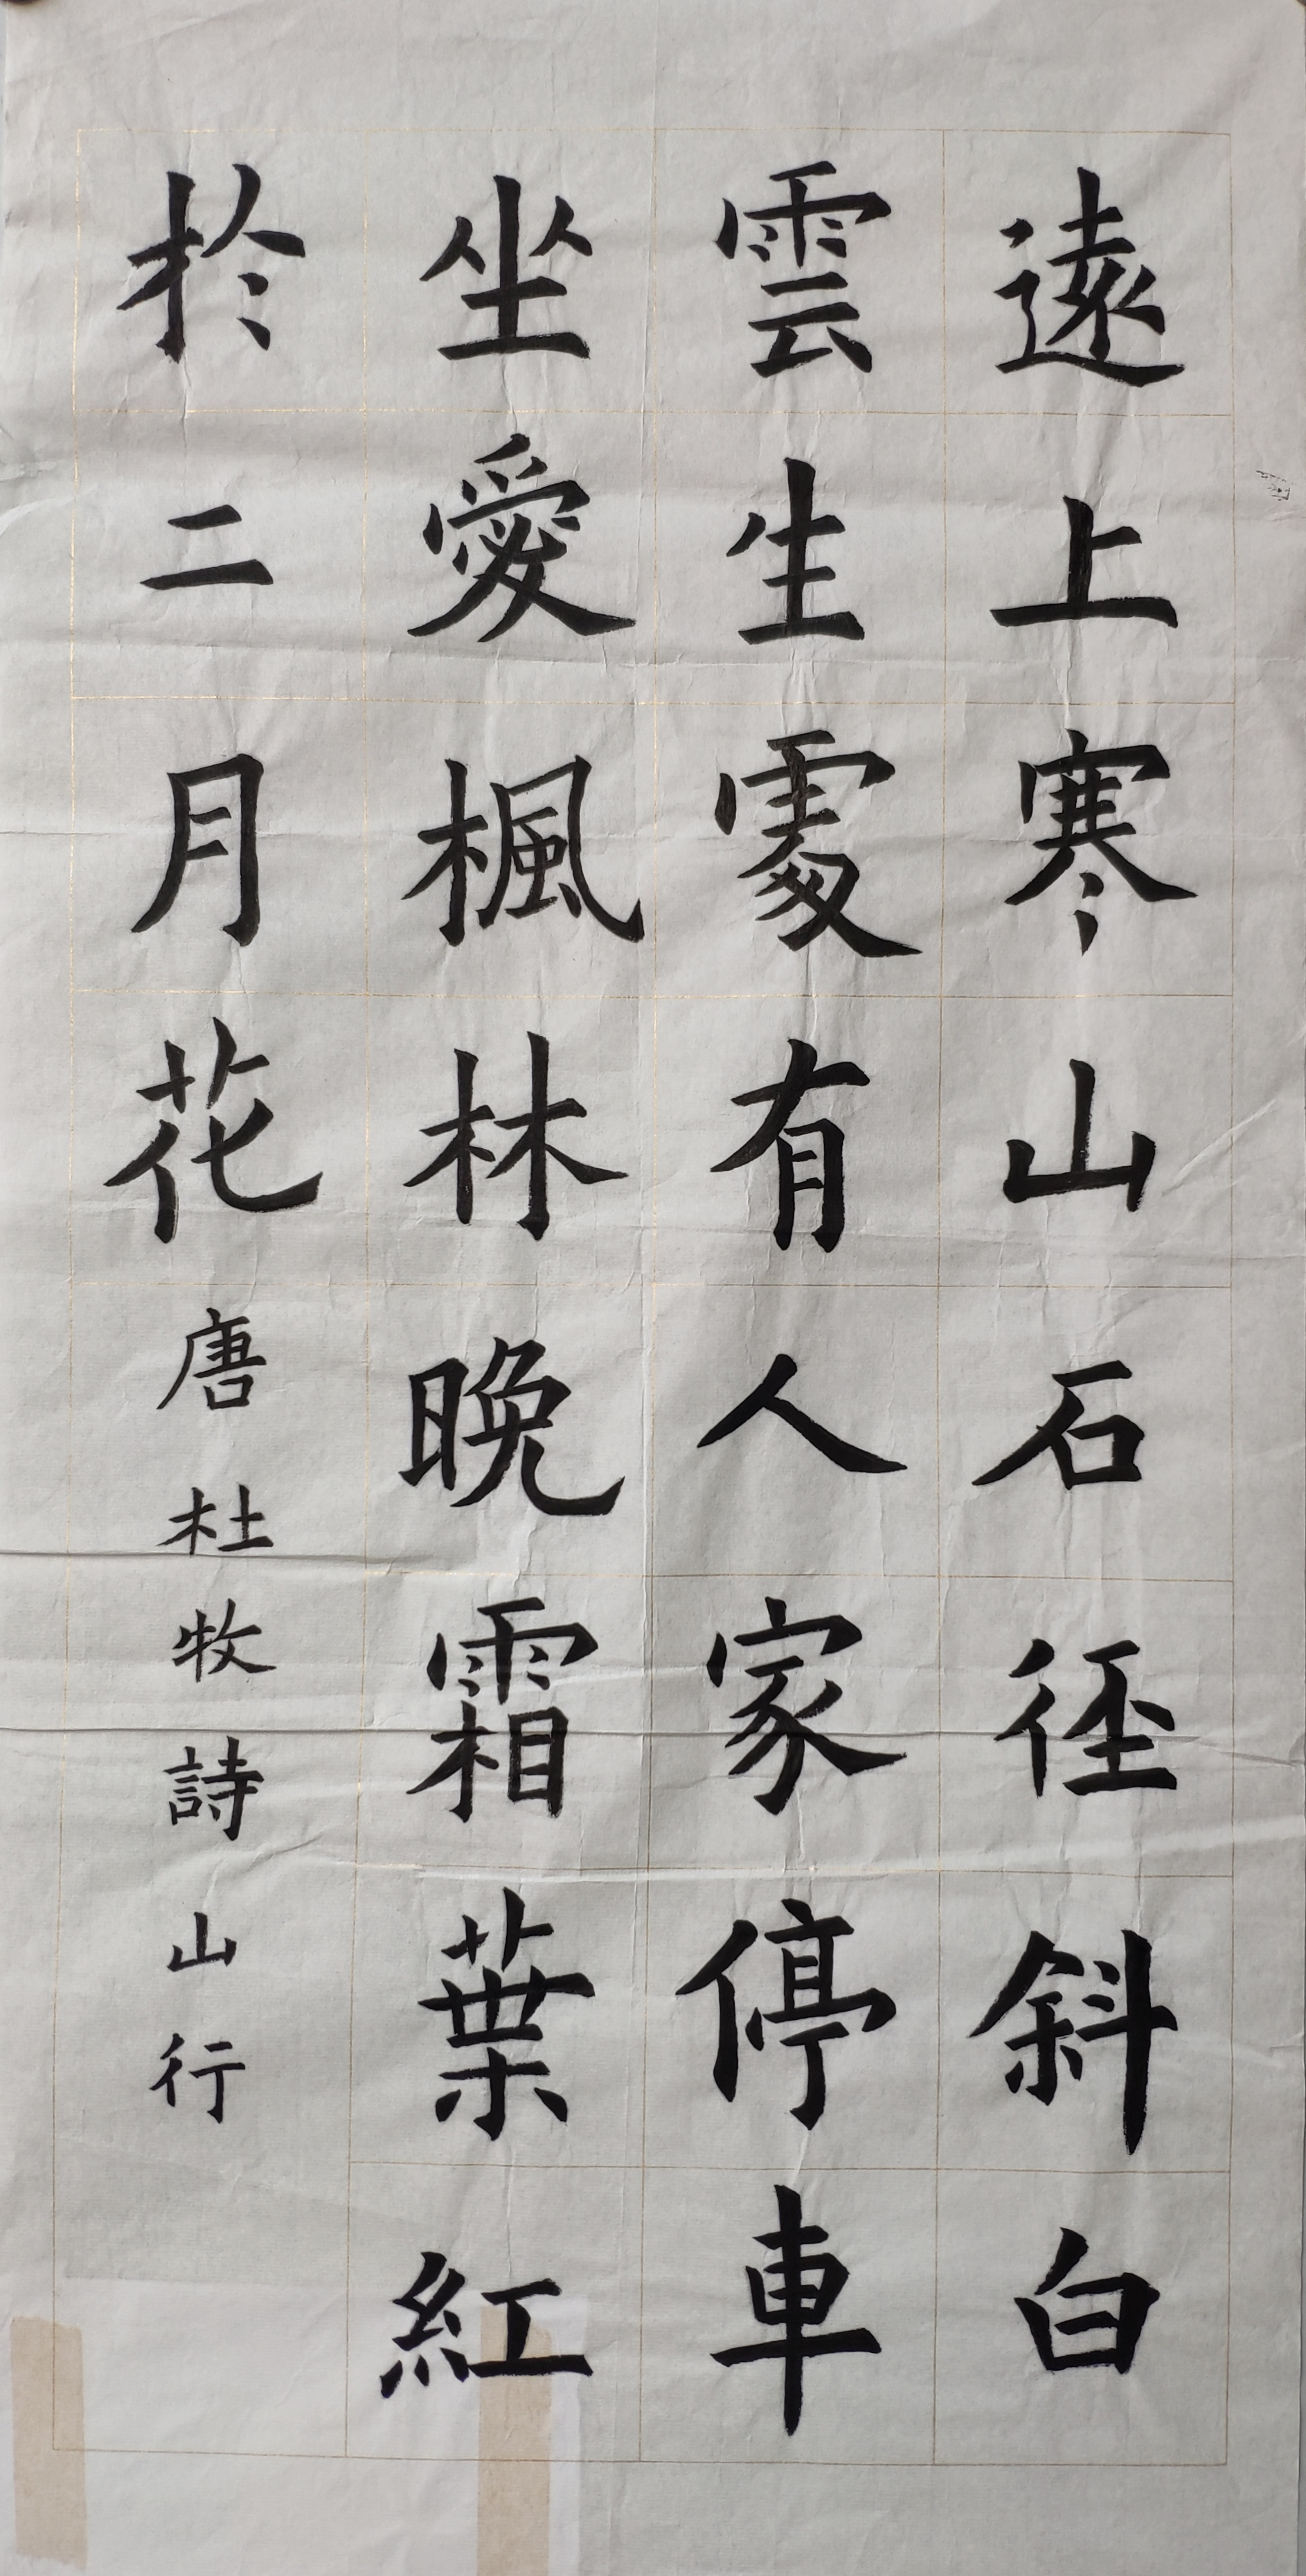 遠上寒山石徑斜白
雲生處有人家停車
坐愛楓林晚霜葉紅
於二月花唐杜牧詩山行